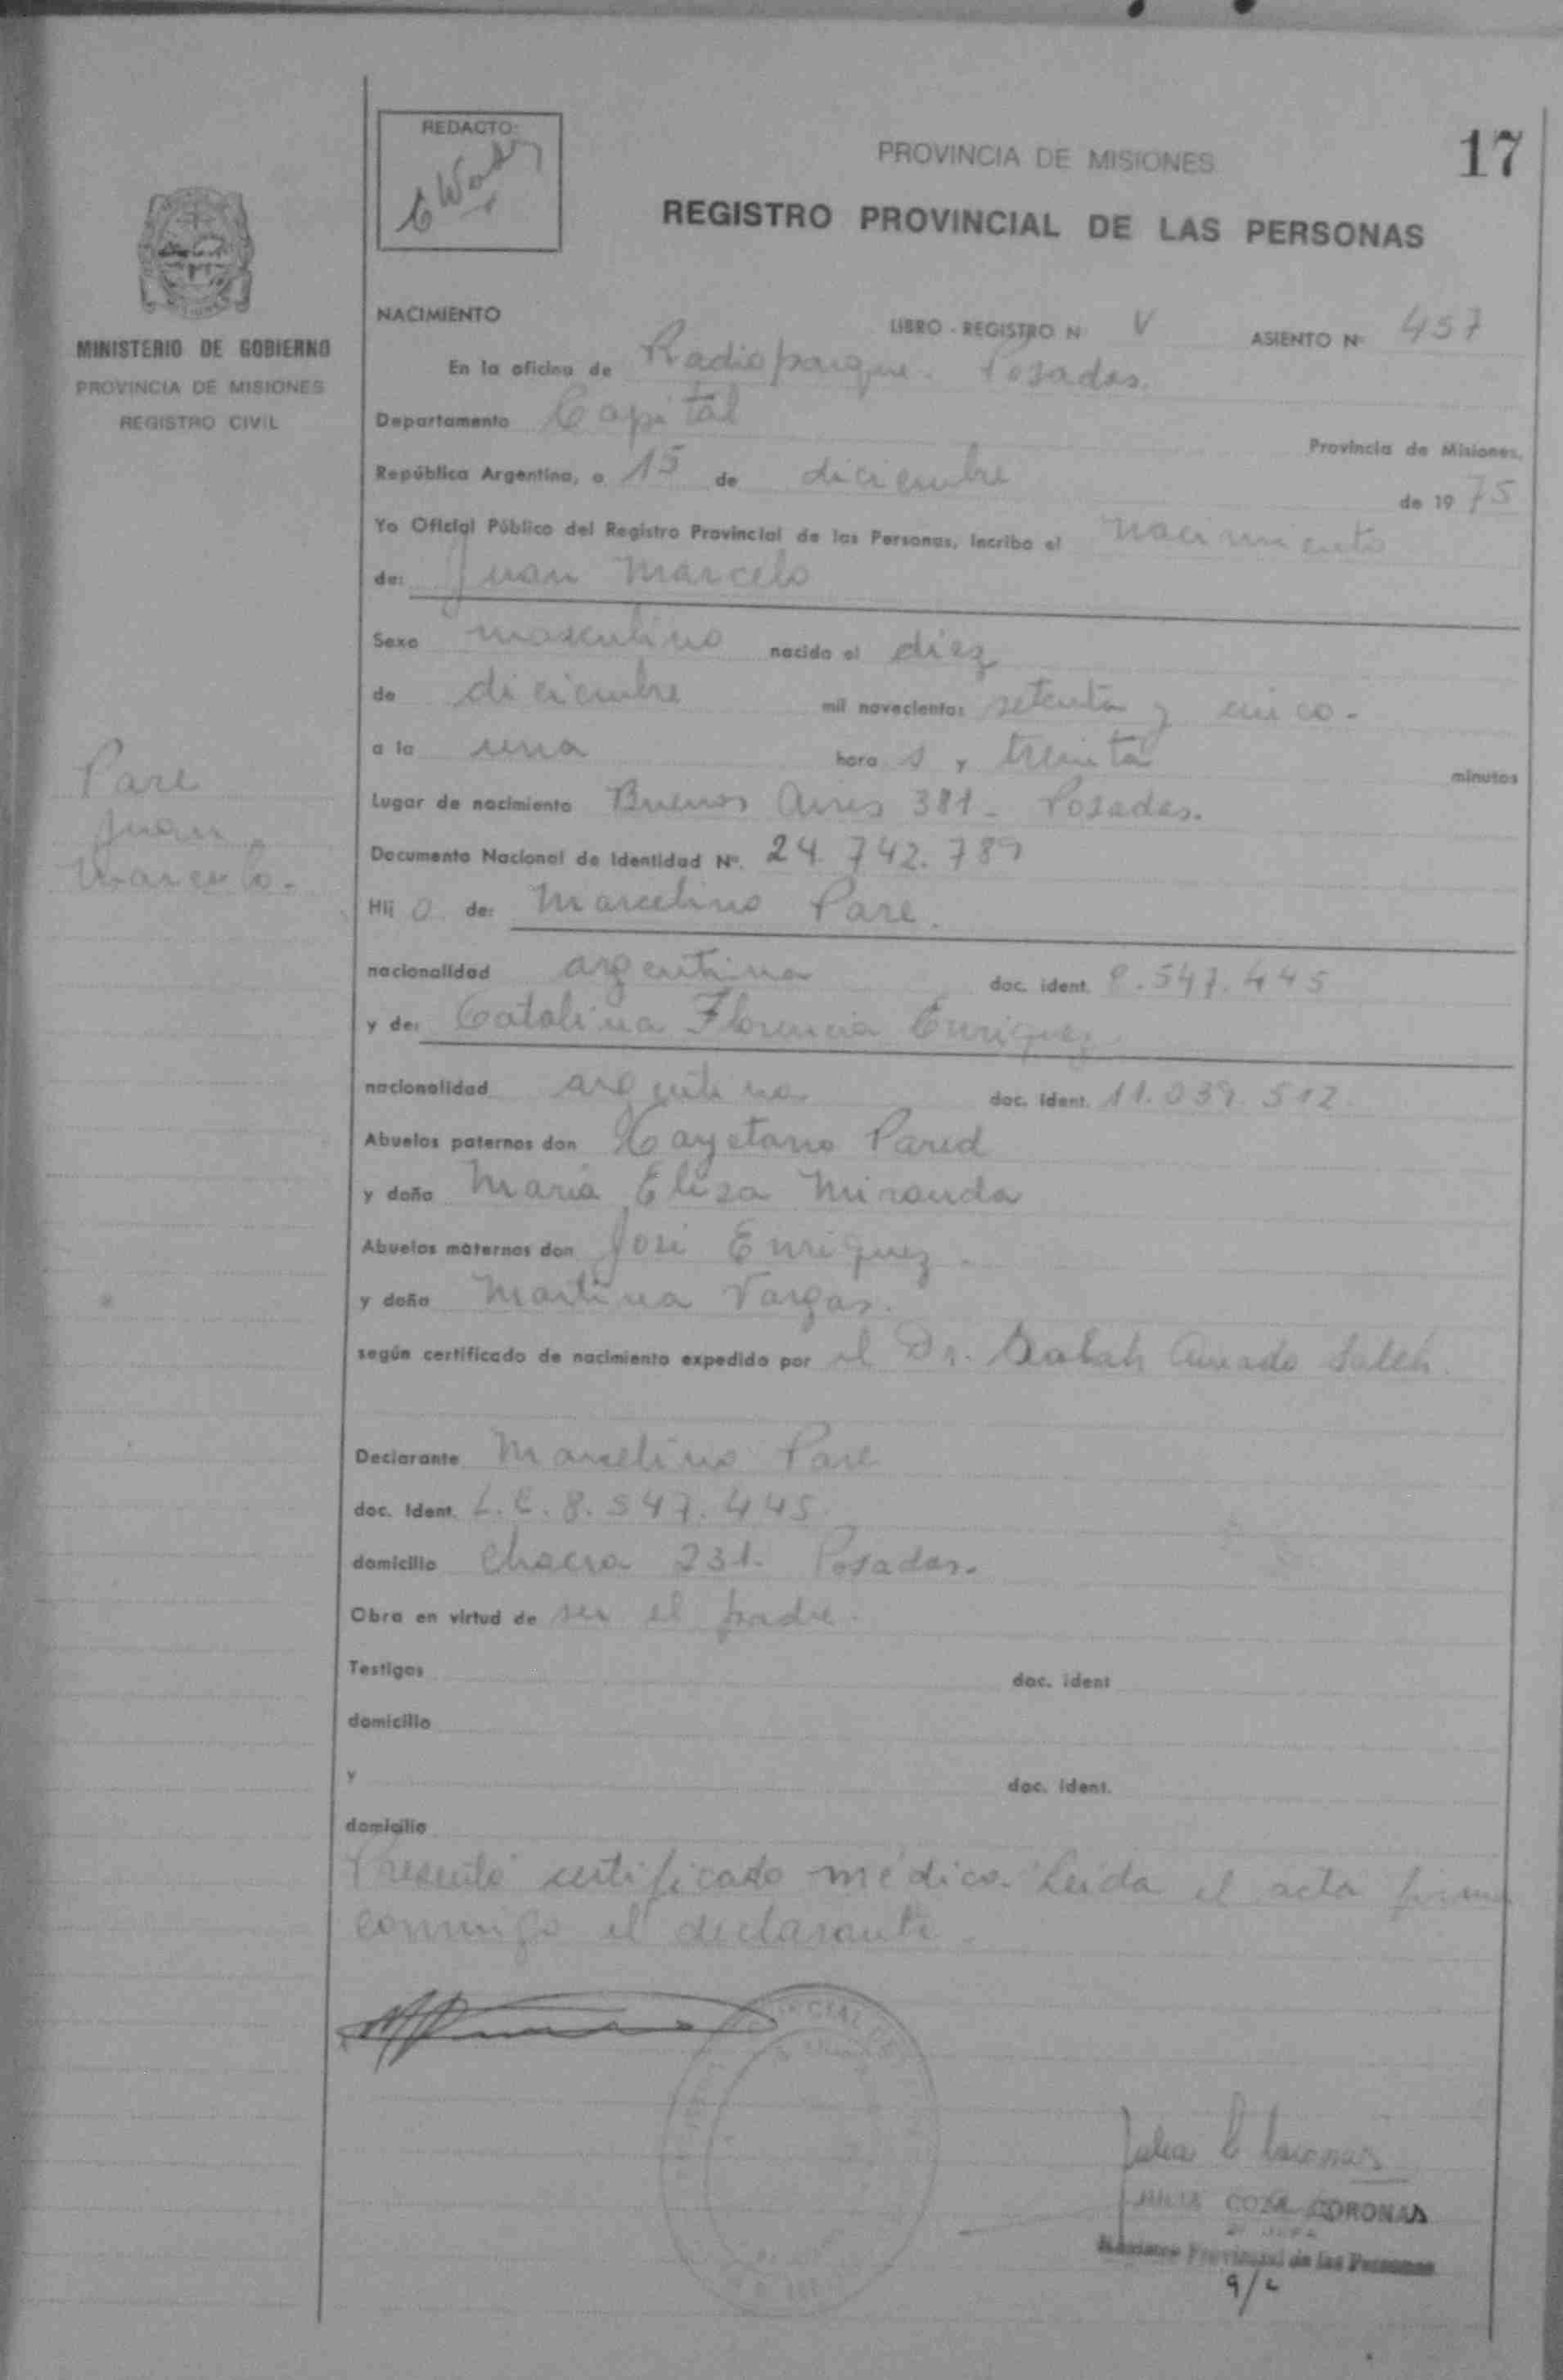 17
REDACTO:
PROVINCIA DE MISIONES
REGISTRO PROVINCIAL DE LAS PERSONAS
MINISTERIO DE GOBIERNO
PROVINCIA DE MISIONES
REGISTRO CIVIL
NACIMIENTO LIBRO - REGISTRO N V ASIENTO Nº 457
En la oficina de Radioparque - Posadas.
Departamento Capital Provincia de Misiones,
República Argentina, a 15 de diciembre de 19 75
Yo Oficial Público del Registro Provincial de las Personas, Incribo el nacimiento
de: Juan Marcelo
Sexo masculino nacido el diez
de diciembre mil novecientos setenta y cinco -
a la una hora s y treinta minutos
Pare
Juan
Marcelo -
Lugar de nacimiento Buenos Aires 381 - Posadas.
Documento Nacional de Identidad Nº. 24.742.789
Hij o de: Marcelino Pare.
nacionalidad argentina doc. ident. 8.547.445
y de: Catalina Florencia Enriquez
nacionalidad argentina doc. ident. 11.039.512
Abuelos paternos don Cayetano Pared
y doña María Elisa Miranda
Abuelos maternos don José Enriquez -
y doña Martina Vargas.
según certificado de nacimiento expedido por el Dr. Amado Saleh.
Declarante Marcelino Pare
doc. Ident. L.E. 8.547.445.
domicilio Chacra 231 - Posadas.
Obra en virtud de ser el padre.
Testigos doc. ident
domicilio
y doc. ident.
domicilio
Presentó certificado médico. Leída el acta firma
conmigo el declarante.
CORONAS
Provincial de las Personas
9/2